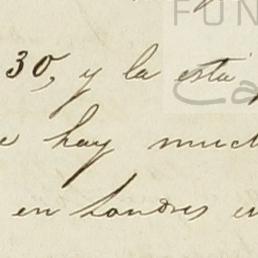 FUN
30, y la está
hay much
en Londres en